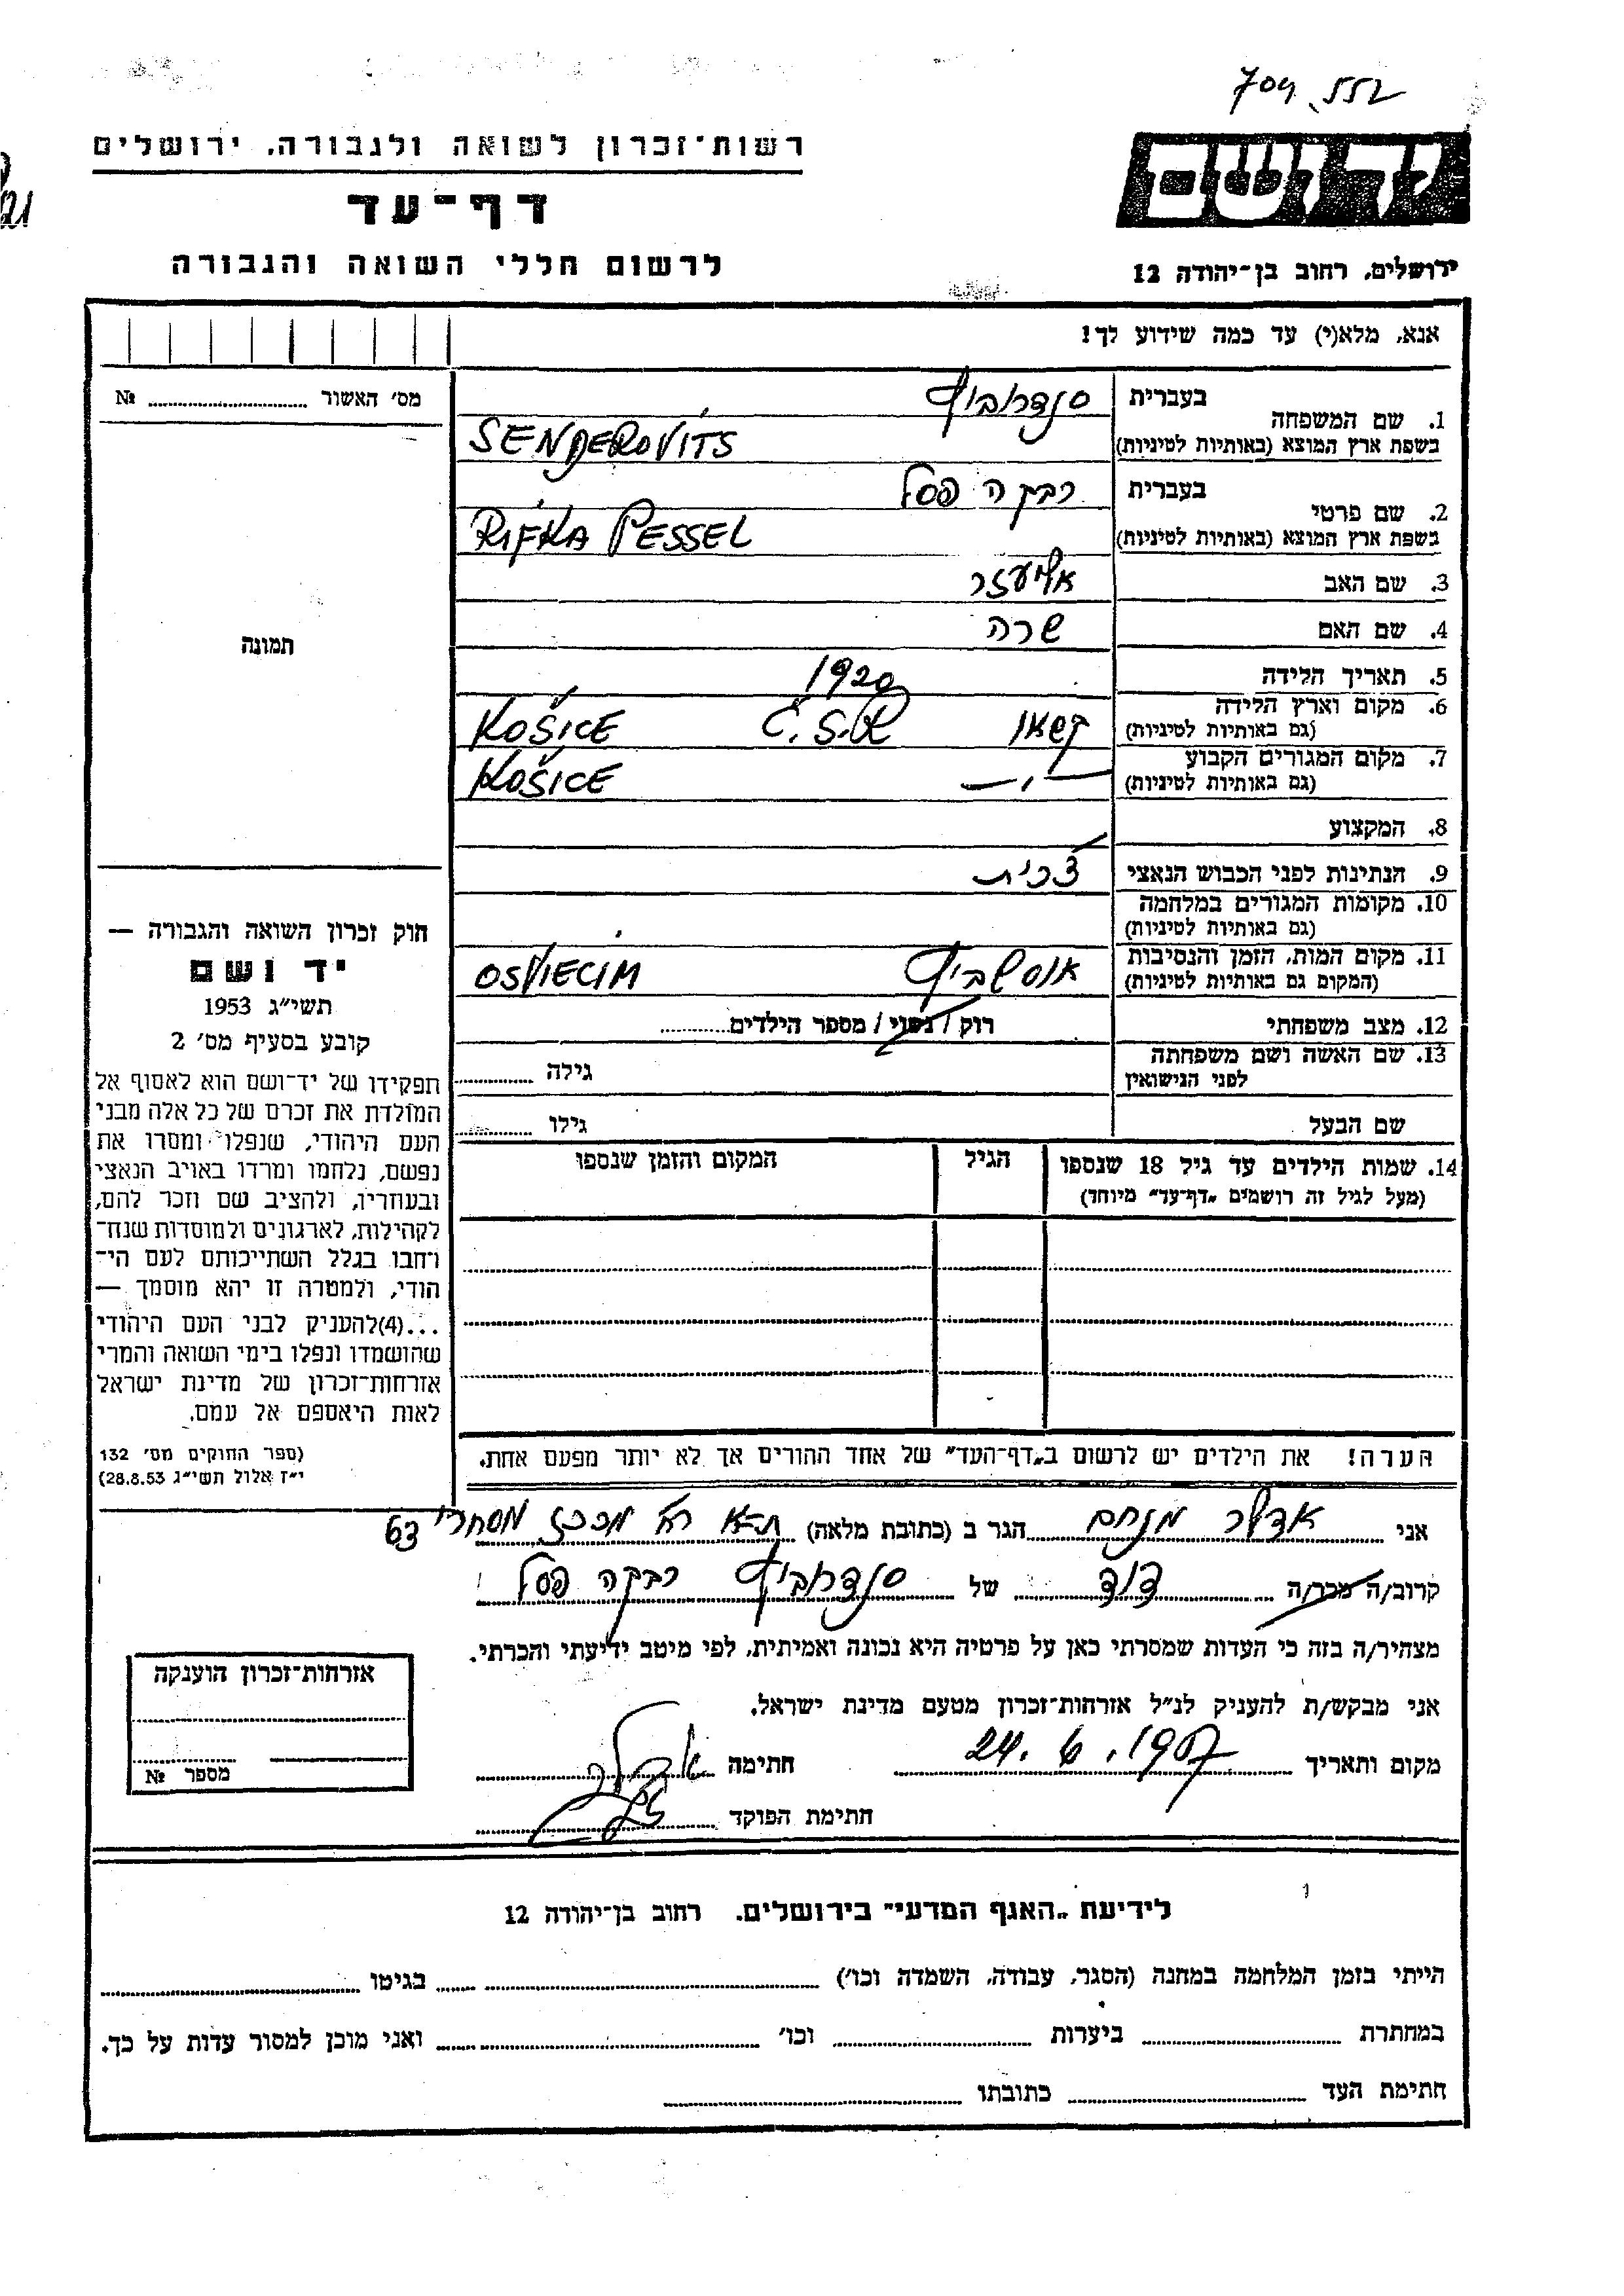 709 552
רשות־זכרון לשואה ולגבורה, ירושלים
דף־עד
לרשום חללי השואה והגבורה
יד ושם
ירושלים, רחוב בן־יהודה 12
אנא, מלא(י) עד כמה שידוע לך!
מס׳ האשור № 
1. שם המשפחה
בעברית סנדרוביץ
בשפת ארץ המוצא (באותיות לטיניות) SENDEROVITS
2. שם פרטי
בעברית רבקה פסל
בשפת ארץ המוצא (באותיות לטיניות) RIFKA PESSEL
3. שם האב אליעזר
4. שם האם שרה
5. תאריך הלידה 1920
6. מקום וארץ הלידה
(גם באותיות לטיניות) קשאו Č.S.R KOŠICE
7. מקום המגורים הקבוע
(גם באותיות לטיניות) — " — KOŠICE
8. המקצוע
9. הנתינות לפני הכבוש הנאצי צ'כית
10. מקומות המגורים במלחמה
(גם באותיות לטיניות)
11. מקום המות, הזמן והנסיבות
(המקום גם באותיות לטיניות) אוסשביץ OSVIECIM
12. מצב משפחתי רוק / נשוי / מספר הילדים
13. שם האשה ושם משפחתה
לפני הנישואין גילה
שם הבעל גילו
14. שמות הילדים עד גיל 18 שנספו הגיל המקום והזמן שנספו
(מעל לגיל זה רושמים „דף־עד" מיוחד)
תמונה
חוק זכרון השואה והגבורה —
יד ושם
תשי״ג 1953
קובע בסעיף מס׳ 2
תפקידו של יד־ושם הוא לאסוף אל
המולדת את זכרם של כל אלה מבני
העם היהודי, שנפלו ומסרו את
נפשם, נלחמו ומרדו באויב הנאצי
ובעוזריו, ולהציב שם וזכר להם,
לקהילות, לארגונים ולמוסדות שנח־
רחבו בגלל השתייכותם לעם הי־
הודי, ולמטרה זו יהא מוסמך —
...(4)להעניק לבני העם היהודי
שהושמדו ונפלו בימי השואה והמרי
אזרחות־זכרון של מדינת ישראל
לאות היאספם אל עמם.
(ספר החוקים מס׳ 132
י״ז אלול תשי״ג 28.8.53)
הערה! את הילדים יש לרשום ב„דף־העד" של אחד ההורים אך לא יותר מפעם אחת.
אני אדלר מנחם הגר ב (כתובת מלאה) ת״א מרכז מסחרי 63
קרוב/ה מכר/ה דוד של סנדרוביץ רבקה פסל
מצהיר/ה בזה כי העדות שמסרתי כאן על פרטיה היא נכונה ואמיתית, לפי מיטב ידיעתי והכרתי.
אני מבקש/ת להעניק לנ״ל אזרחות־זכרון מטעם מדינת ישראל.
מקום ותאריך 24. 6. 1957 חתימה אדלר
חתימת הפוקד
אזרחות־זכרון הוענקה
מספר №
לידיעת „האגף המדעי" בירושלים. רחוב בן־יהודה 12
הייתי בזמן המלחמה במחנה (הסגר, עבודה, השמדה וכו׳) בגיטו
במחתרת ביערות וכו׳ ואני מוכן למסור עדות על כך.
חתימת העד כתובתו